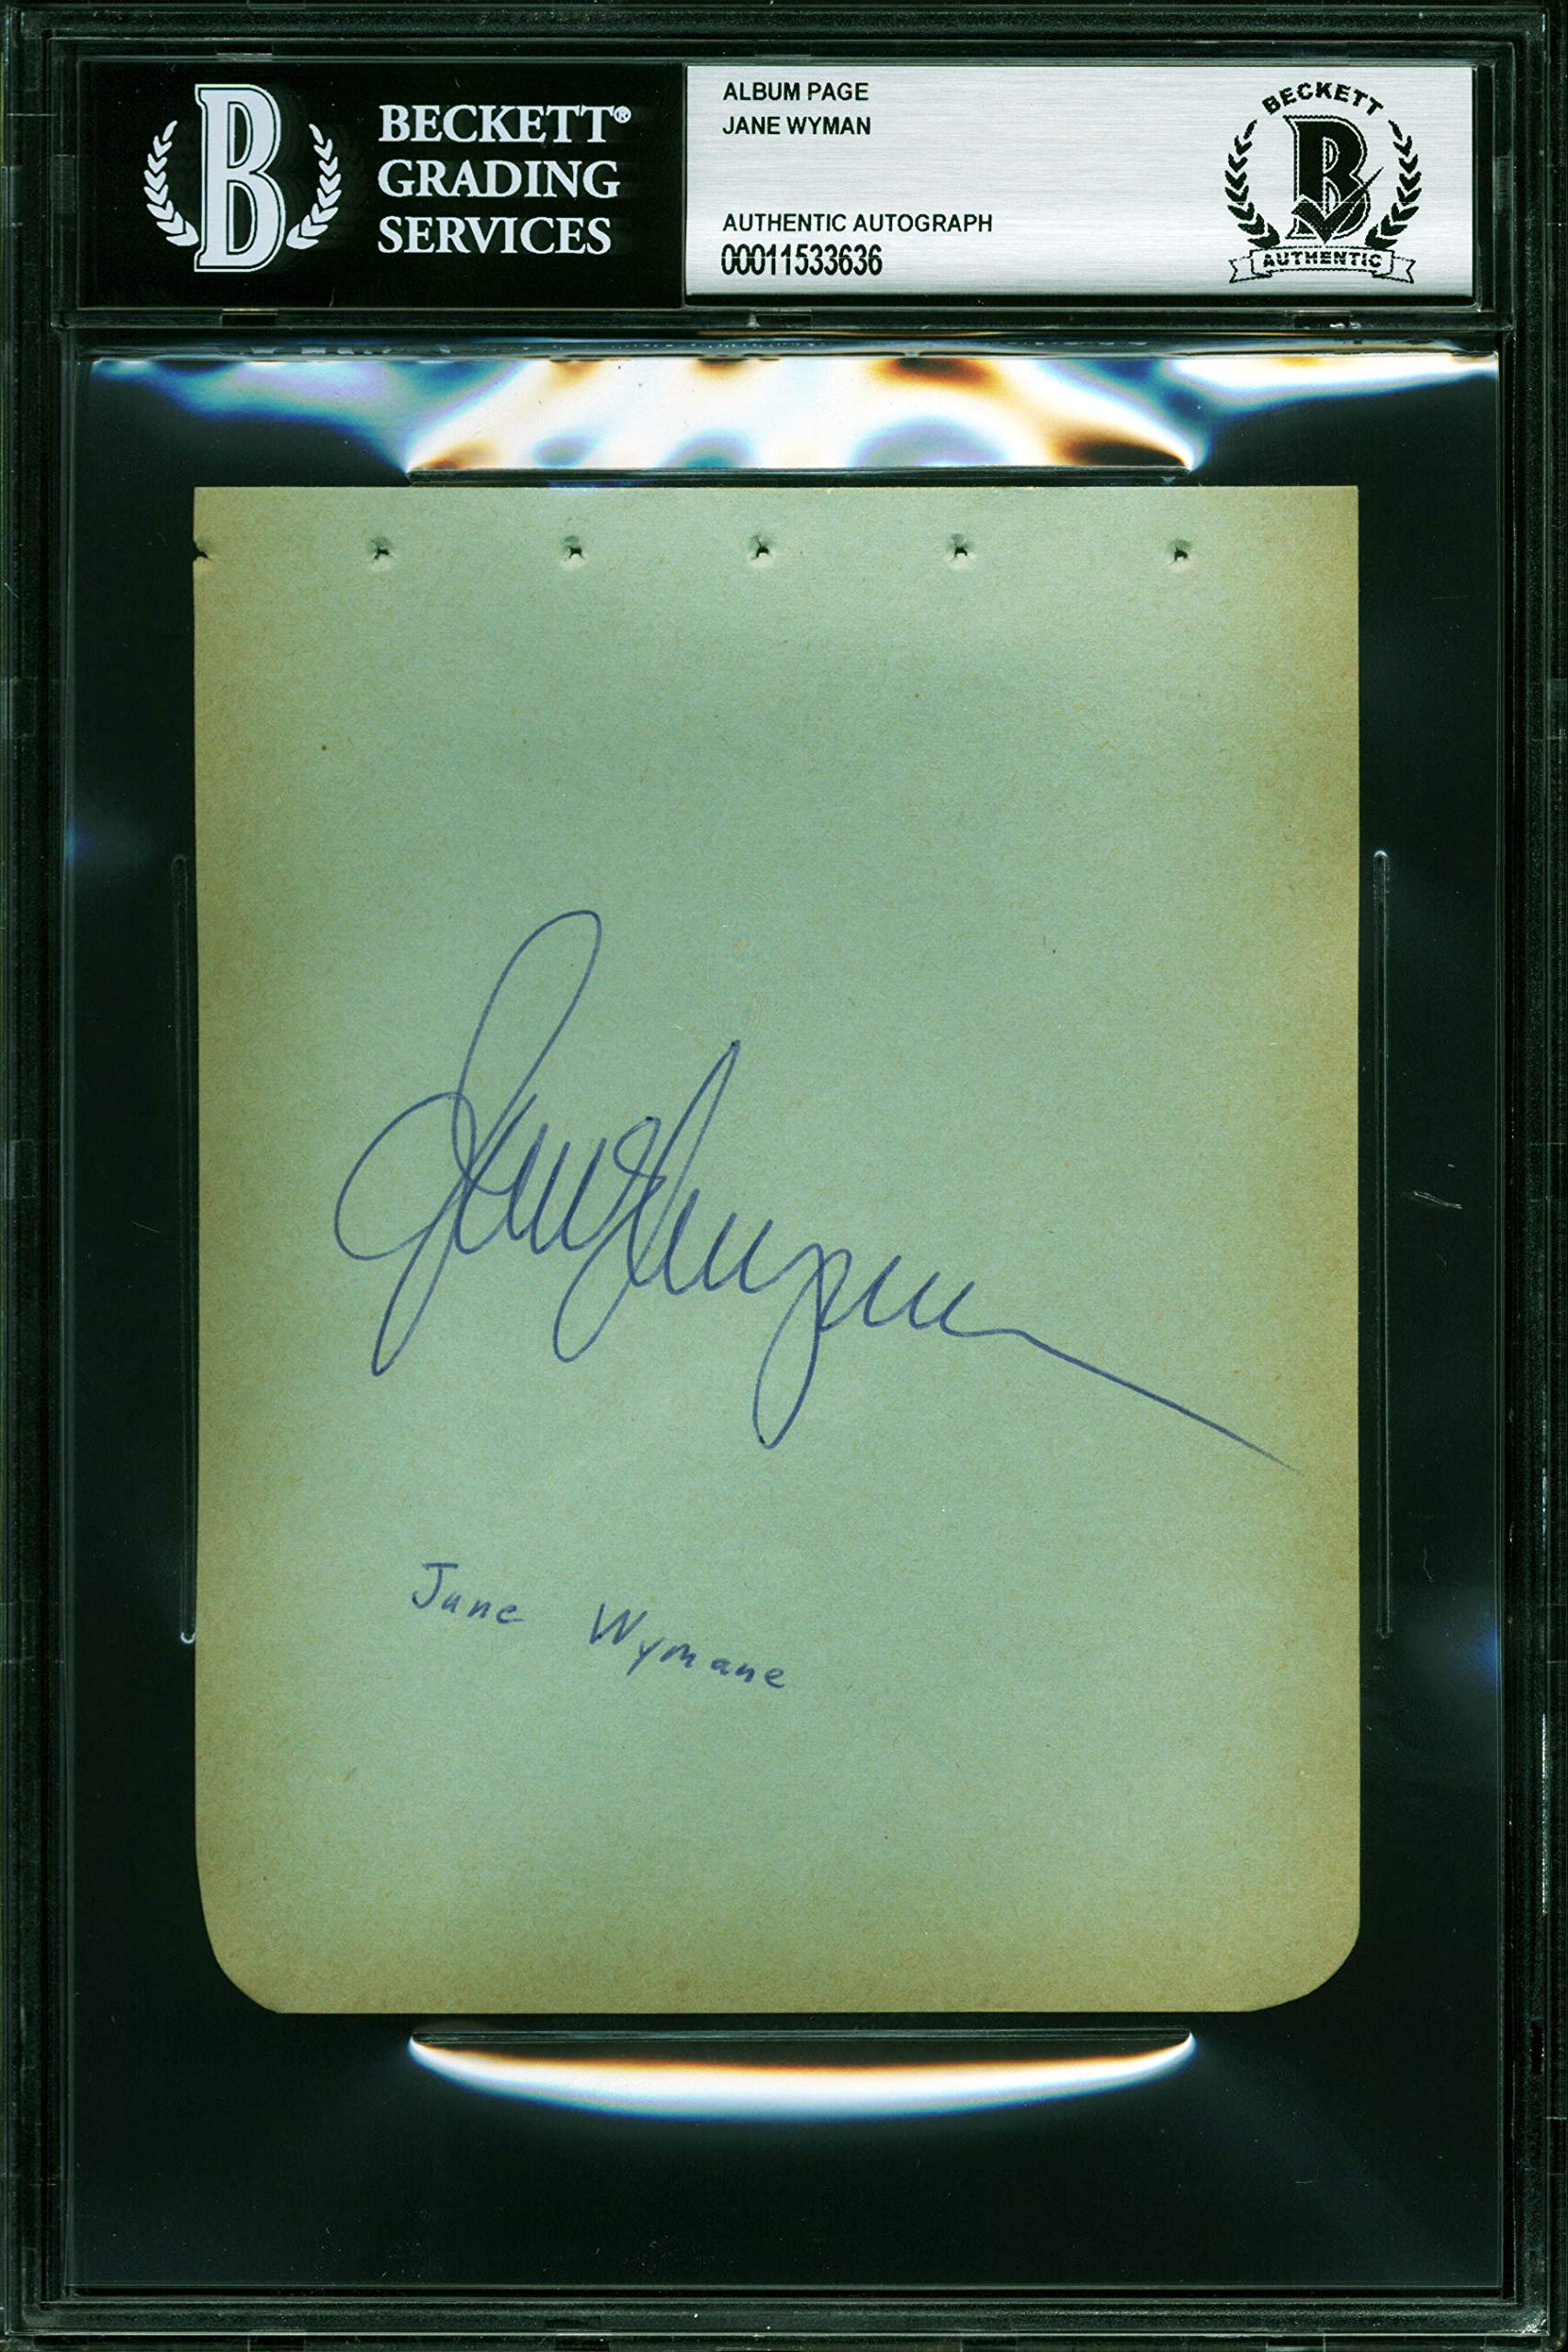 BECKETT®
GRADING
SERVICES
ALBUM PAGE
JANE WYMAN
AUTHENTIC AUTOGRAPH
00011533636
BECKETT
B
AUTHENTIC
B
Jane Wyman
Jane Wymane